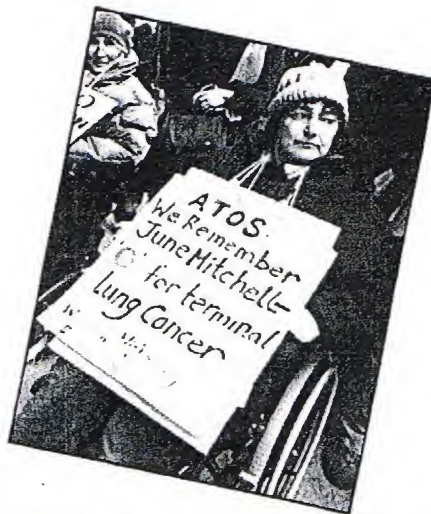 ATOS.
We Remember
June Mitchell-
'0' for terminal
Lung Cancer